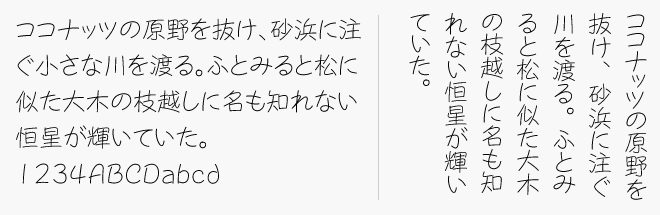 ココナッツの原野を抜け、砂浜に注
ぐ小さな川を渡る。ふとみると松に
似た大木の枝越しに名も知れない
恒星が輝いていた。
1234ABCDabcd
ココナッツの原野を
抜け、砂浜に注ぐ
川を渡る。ふとみ
ると松に似た大木
の枝越しに名も知
れない恒星が輝い
ていた。